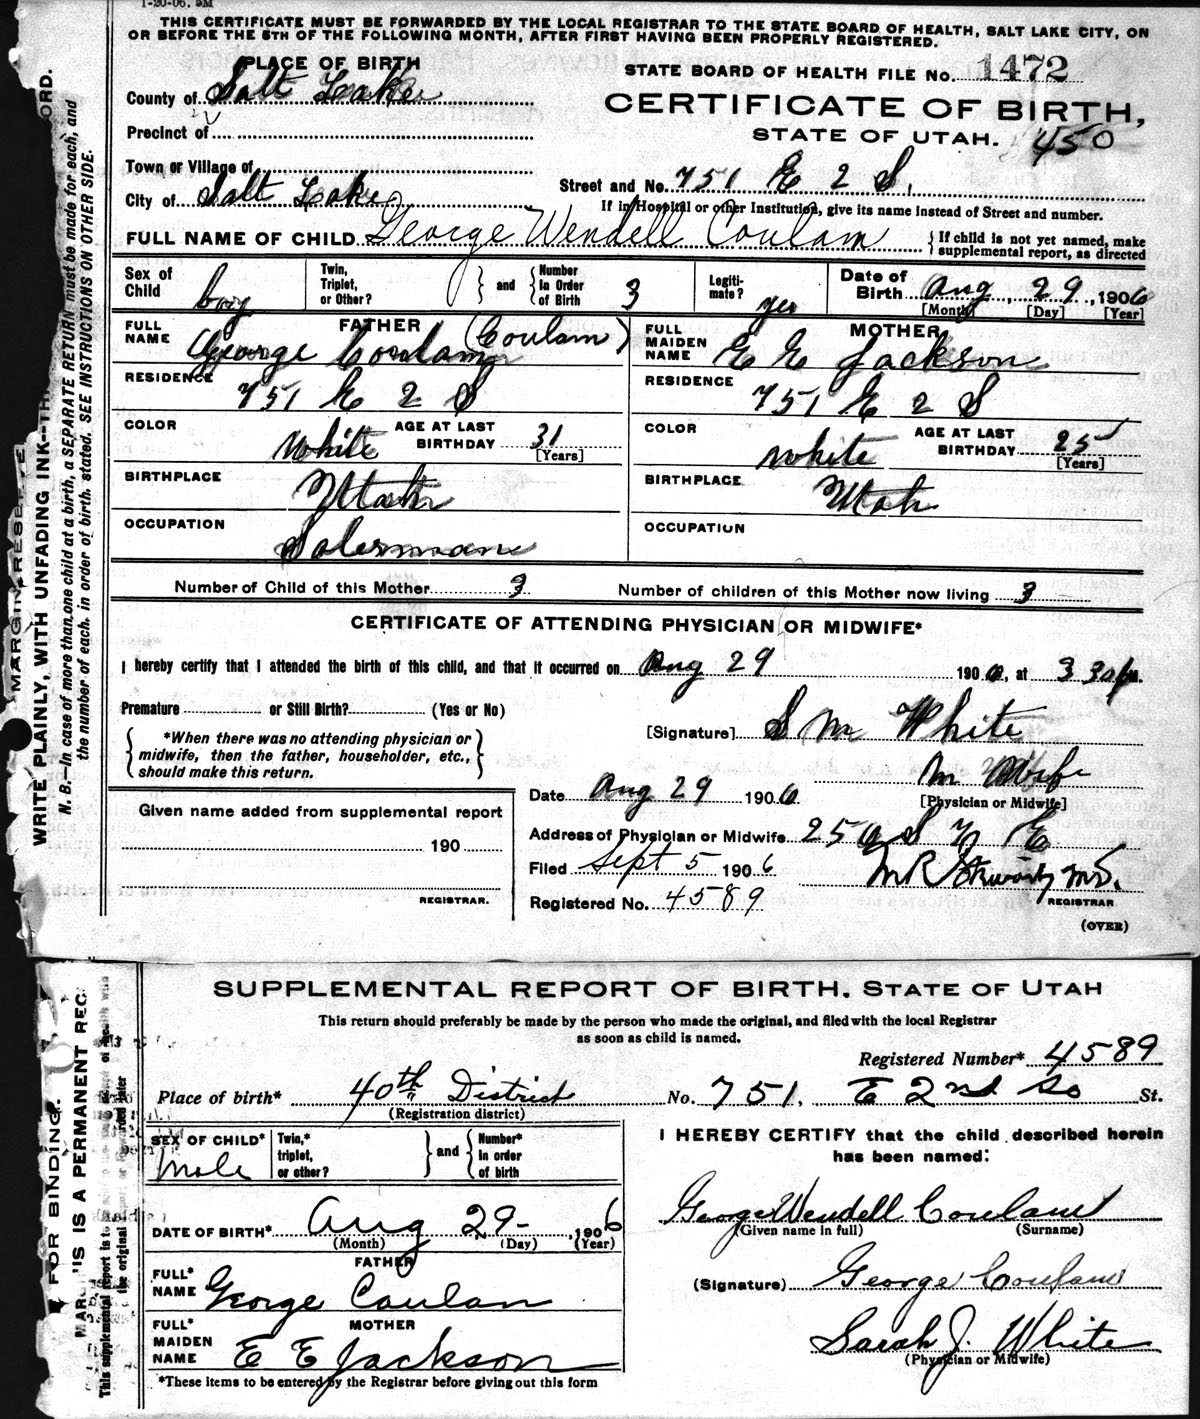 1-20-06. 5M
THIS CERTIFICATE MUST BE FORWARDED BY THE LOCAL REGISTRAR TO THE STATE BOARD OF HEALTH, SALT LAKE CITY, ON
OR BEFORE THE 5TH OF THE FOLLOWING MONTH, AFTER FIRST HAVING BEEN PROPERLY REGISTERED.
PLACE OF BIRTH
STATE BOARD OF HEALTH FILE No. 1472
County of Salt Lake
CERTIFICATE OF BIRTH,
Precinct of
STATE OF UTAH. 450
Town or Village of
Street and No. 751 E 2 S.
City of Salt Lake
If in Hospital or other Institution, give its name instead of Street and number.
FULL NAME OF CHILD George Wendell Coulam { If child is not yet named, make supplemental report, as directed
Sex of Child boy
Twin, Triplet, or Other? } and { Number in Order of Birth 3
Legitimate? yes
Date of Birth Aug, 29, 1906
[Month] [Day] [Year]
FATHER
FULL NAME George Coulam (Coulam)
MOTHER
FULL MAIDEN NAME E E Jackson
RESIDENCE 751 E 2 S
RESIDENCE 751 E 2 S
COLOR White AGE AT LAST BIRTHDAY 31 [Years]
COLOR White AGE AT LAST BIRTHDAY 25 [Years]
BIRTHPLACE Utah
BIRTHPLACE Utah
OCCUPATION Salesman
OCCUPATION
Number of Child of this Mother 3 Number of children of this Mother now living 3
CERTIFICATE OF ATTENDING PHYSICIAN OR MIDWIFE*
I hereby certify that I attended the birth of this child, and that it occurred on Aug 29 1906, at 3 30 M.
Premature or Still Birth? (Yes or No)
[Signature] S M White
{ *When there was no attending physician or midwife, then the father, householder, etc., should make this return. }
M Wife
[Physician or Midwife]
Date Aug 29 1906
Given name added from supplemental report
Address of Physician or Midwife 259 S 7 E
190
Filed Sept 5 1906
REGISTRAR.
Registered No. 4589
REGISTRAR
(OVER)
MARGIN RESERVE
WRITE PLAINLY, WITH UNFADING INK—TH ORD.
N. B.—In case of more than one child at a birth, a SEPARATE RETURN must be made for each, and
the number of each, in order of birth, stated. SEE INSTRUCTIONS ON OTHER SIDE.
SUPPLEMENTAL REPORT OF BIRTH, STATE OF UTAH
This return should preferably be made by the person who made the original, and filed with the local Registrar
as soon as child is named.
Registered Number* 4589
Place of birth* 40th District No. 751. E 2nd So St.
(Registration district)
SEX OF CHILD* Male
Twin,* triplet, or other? } and { Number* in order of birth
I HEREBY CERTIFY that the child described herein
has been named:
DATE OF BIRTH* Aug 29- 1906
(Month) (Day) (Year)
George Wendell Coulam
(Given name in full) (Surname)
FATHER
FULL* NAME George Coulan
(Signature) George Coulam
MOTHER
FULL* MAIDEN NAME E E Jackson
Sarah J. White
(Physician or Midwife)
*These items to be entered by the Registrar before giving out this form
FOR BINDING.
'IS IS A PERMANENT REC
This supplemental report is to
the original